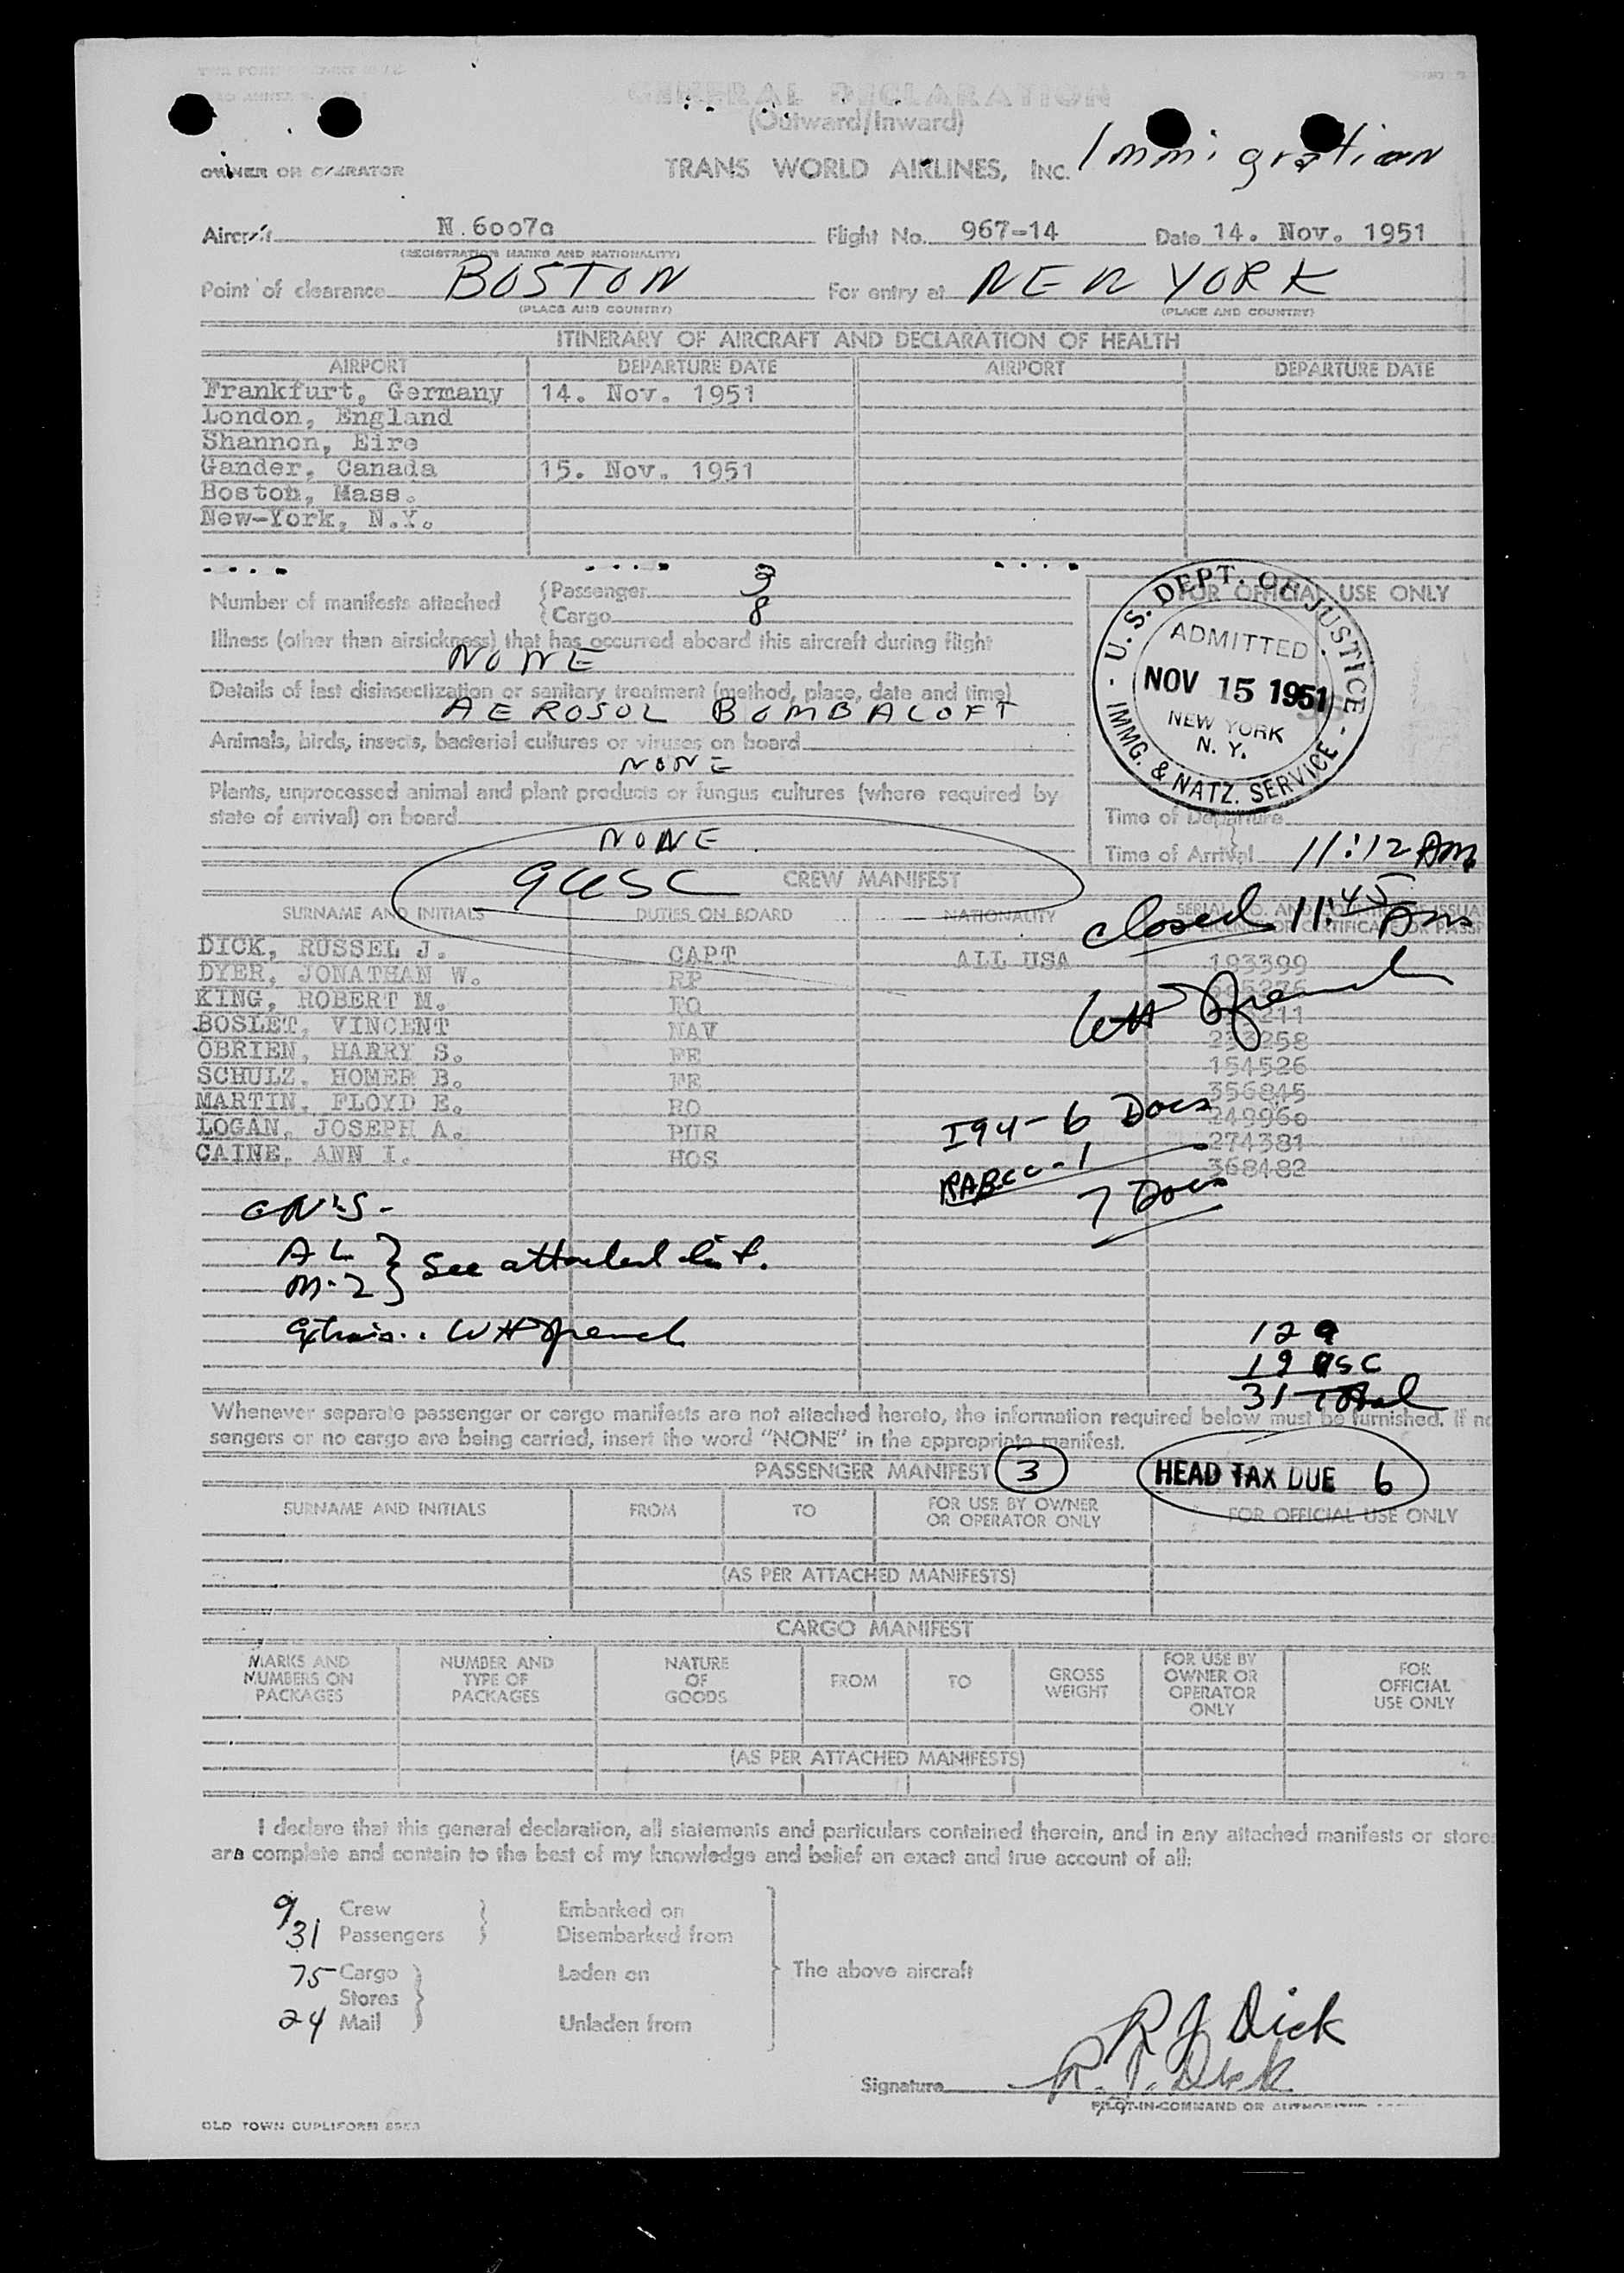 GENERAL DECLARATION
(Outward/Inward)
OWNER OR OPERATOR TRANS WORLD AIRLINES, INC. Immigration
Aircraft N.6007a Flight No. 967-14 Date 14. Nov. 1951
(REGISTRATION MARKS AND NATIONALITY)
Point of clearance BOSTON For entry at NEW YORK
(PLACE AND COUNTRY) (PLACE AND COUNTRY)
ITINERARY OF AIRCRAFT AND DECLARATION OF HEALTH
AIRPORT DEPARTURE DATE AIRPORT DEPARTURE DATE
Frankfurt, Germany 14. Nov. 1951
London, England
Shannon, Eire
Gander, Canada 15. Nov. 1951
Boston, Mass.
New-York, N.Y.
Number of manifests attached
Passenger 3
Cargo 8
Illness (other than airsickness) that has occurred aboard this aircraft during flight
NONE
Details of last disinsectization or sanitary treatment (method, place, date and time)
AEROSOL BOMB ALOFT
Animals, birds, insects, bacterial cultures or viruses on board
NONE
Plants, unprocessed animal and plant products or fungus cultures (where required by
state of arrival) on board
NONE
FOR OFFICIAL USE ONLY
U.S. DEPT. OF JUSTICE
ADMITTED
NOV 15 1951
NEW YORK
N. Y.
IMMG. & NATZ. SERVICE
Time of Departure
Time of Arrival 11:12 AM
9 USC CREW MANIFEST
closed 11:45 Am
SURNAME AND INITIALS DUTIES ON BOARD NATIONALITY
DICK, RUSSEL J. CAPT ALL USA 193399
DYER, JONATHAN W. RP
KING, ROBERT M. FO
BOSLET, VINCENT NAV
OBRIEN, HARRY S. FE 154526
SCHULZ, HOMER B. FE 356845
MARTIN, FLOYD E. RO 249960
LOGAN, JOSEPH A. PUR 274381
CAINE, ANN I. HOS 368482
WH French
I94-6 Docs
7 Docs
AL
M-2 } See attached list.
WH French
12 a
19 USC
31 Total
Whenever separate passenger or cargo manifests are not attached hereto, the information required below must be furnished. If no
sengers or no cargo are being carried, insert the word "NONE" in the appropriate manifest.
PASSENGER MANIFEST 3
HEAD TAX DUE 6
SURNAME AND INITIALS FROM TO FOR USE BY OWNER OR OPERATOR ONLY FOR OFFICIAL USE ONLY
(AS PER ATTACHED MANIFESTS)
CARGO MANIFEST
MARKS AND NUMBERS ON PACKAGES NUMBER AND TYPE OF PACKAGES NATURE OF GOODS FROM TO GROSS WEIGHT FOR USE BY OWNER OR OPERATOR ONLY FOR OFFICIAL USE ONLY
(AS PER ATTACHED MANIFESTS)
I declare that this general declaration, all statements and particulars contained therein, and in any attached manifests or store
are complete and contain to the best of my knowledge and belief an exact and true account of all:
9 Crew Embarked on
31 Passengers Disembarked from
75 Cargo Laden on The above aircraft
Stores
24 Mail Unladen from
R J Dick
Signature R. J. Dick
PILOT-IN-COMMAND OR AUTHORIZED
OLD TOWN DUPLIFORM